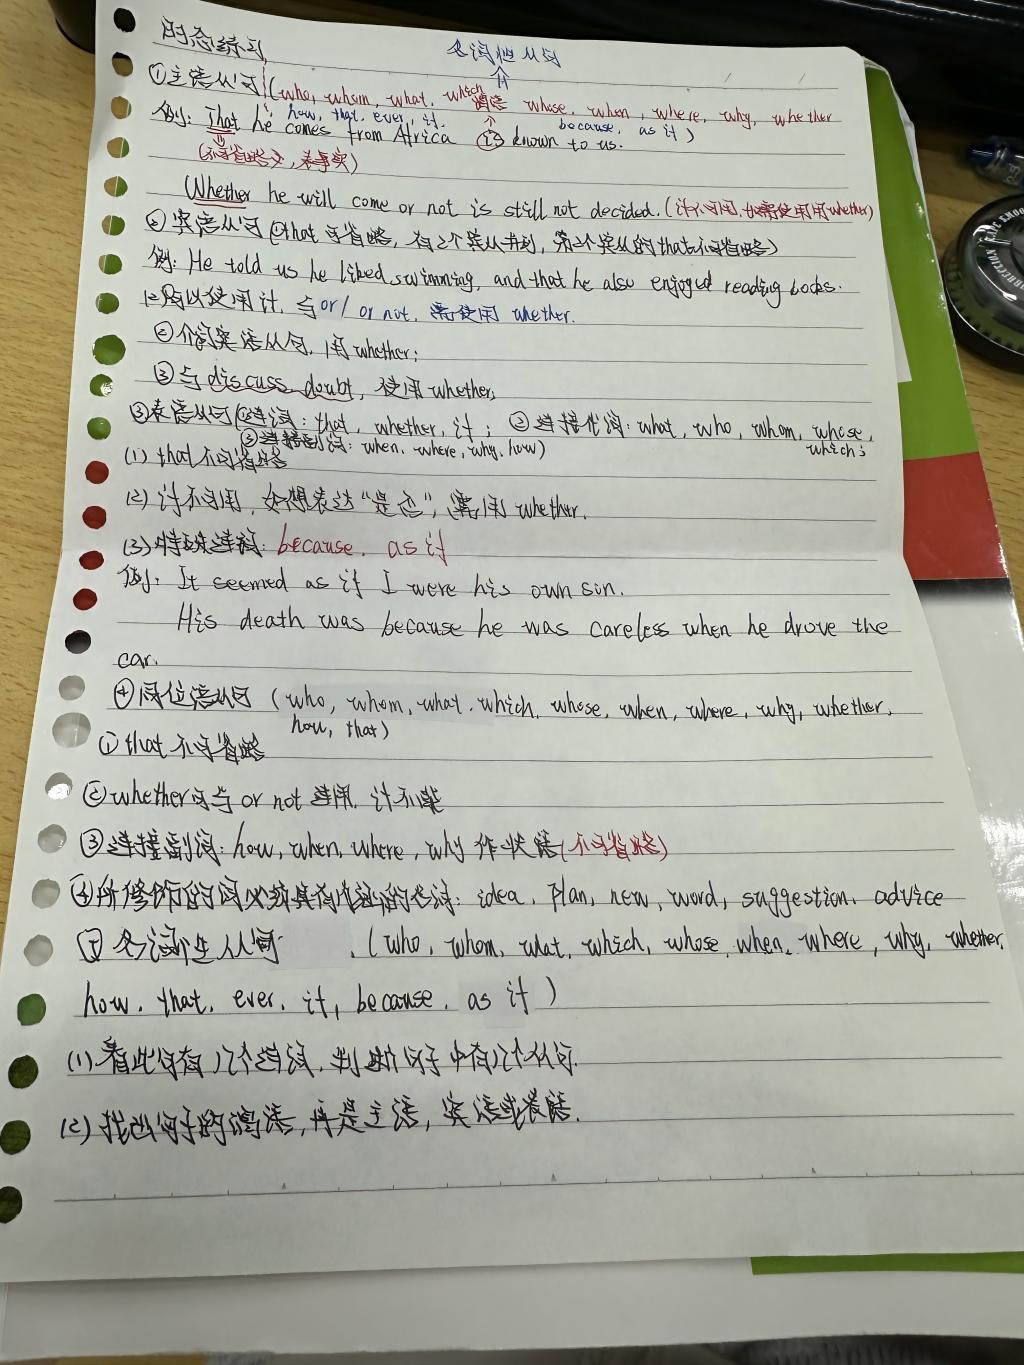 时态练习
名词性从句
①主语从句(who, whom, what, which 谓语 whose, when, where, why, whether
how, that, ever, if, because, as if)
例: That he comes from Africa is known to us.
(不可省略, 表事实)
Whether he will come or not is still not decided. (if不可用, 如需使用用whether)
② 宾语从句(①that 可省略, 有2个宾从并列, 第2个宾从的that不可省略)
例: He told us he liked swimming, and that he also enjoyed reading books.
可以使用 if, 与or/ or not, 需使用 whether.
②介词宾语从句, 用whether;
③与discuss doubt, 使用whether,
③表语从句(①连词: that, whether, if; ②连接代词: what, who, whom, whose,
which;
③连接副词: when, where, why, how)
(1) that不可省略
(2) if不可用, 如想表达“是否”, 需用 whether.
(3)特殊连词: because, as if
例: It seemed as if I were his own sun.
His death was because he was careless when he drove the
car.
④同位语从句 (who, whom, what, which, whose, when, where, why, whether,
how, that)
① that 不可省略
②whether可与 or not 连用, if不能
③连接副词: how, when, where, why 作状语(不可省略)
④所修饰的词必须具有内涵的名词: idea, plan, new, word, suggestion, advice
名词性从句 (who, whom, what, which, whose, when, where, why, whether,
how, that, ever, if, because, as if)
(1)看此句有几个连词, 判断句子中有几个从句.
(2)找出句子的谓语, 再是主语, 宾语或表语.